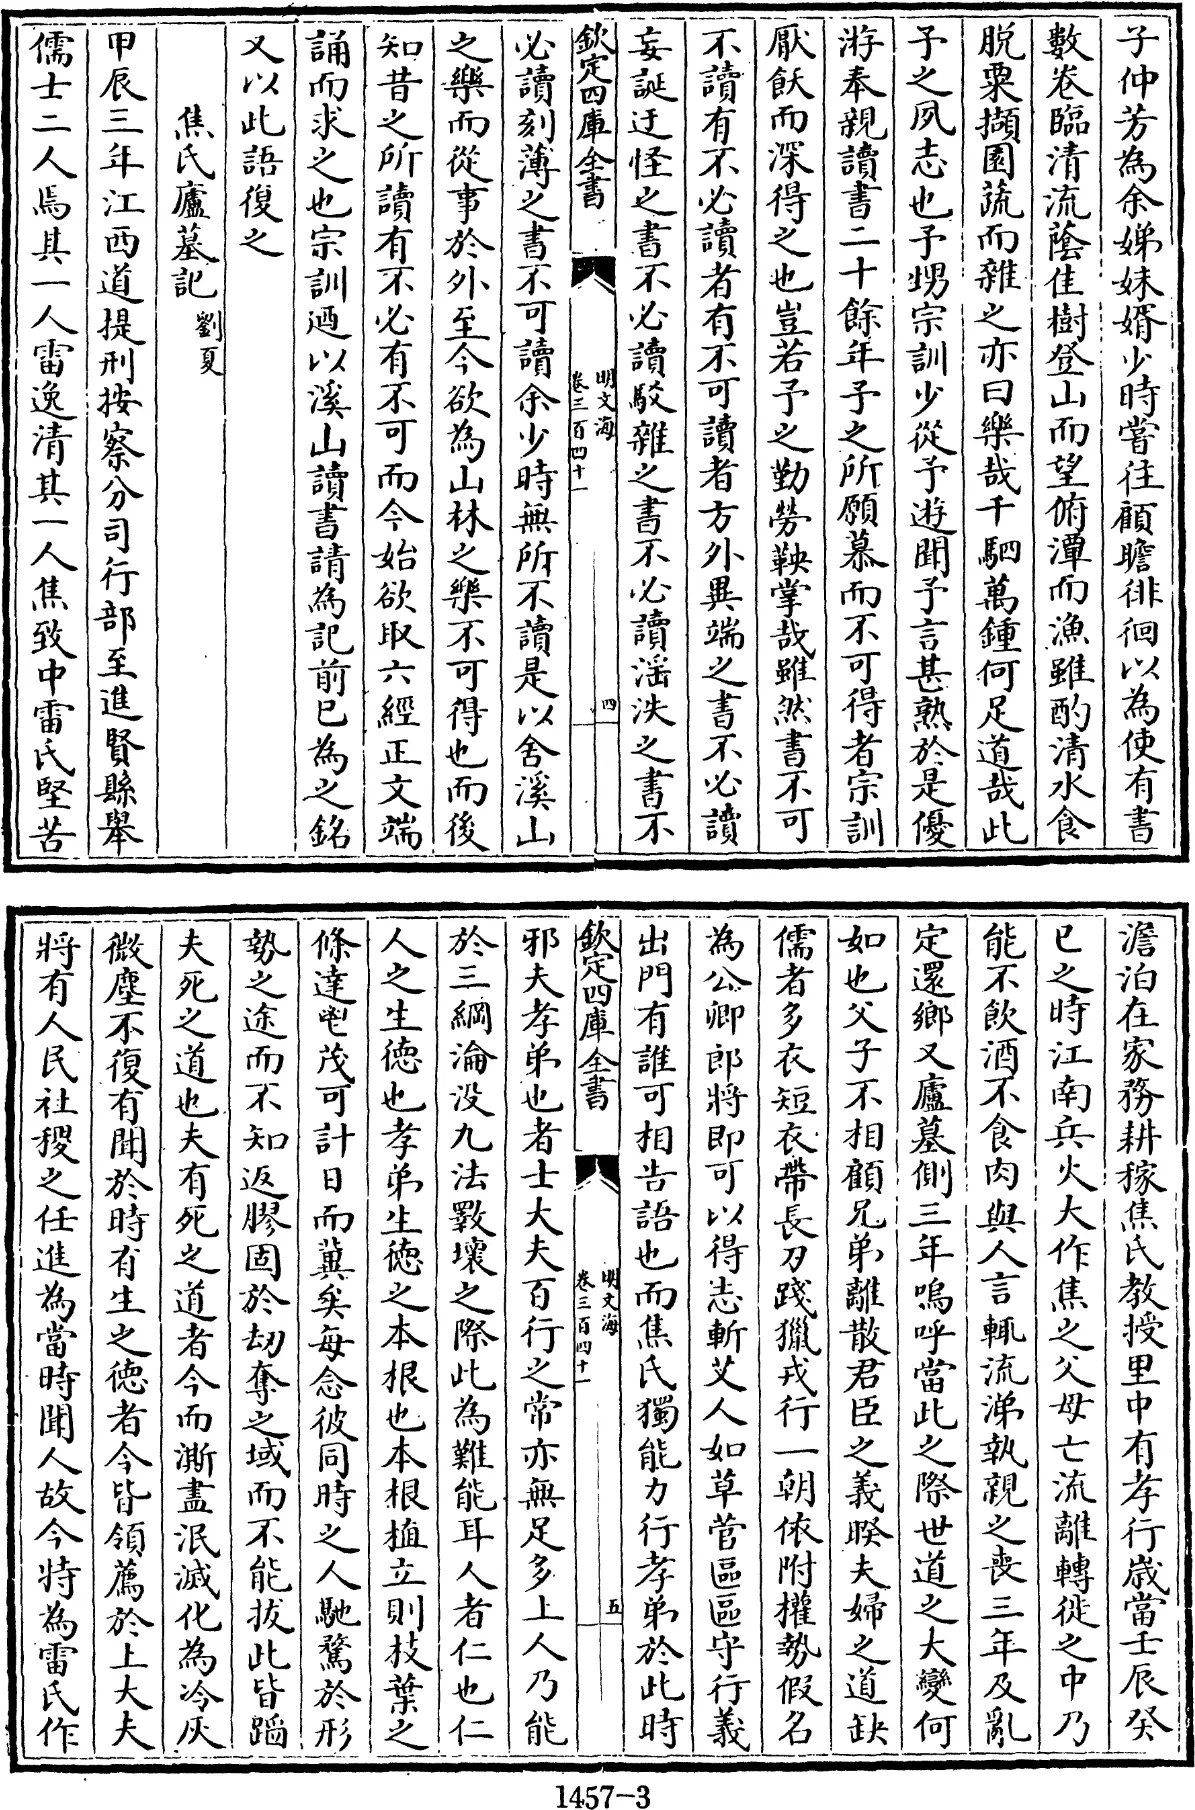 子仲芳為余娣妹婿少時嘗往顧瞻徘徊以為使有書
數卷臨清流蔭佳樹登山而望俯潭而漁雖酌清水食
脱粟擷園蔬而雜之亦曰樂哉千駟萬鍾何足道哉此
予之夙志也予甥宗訓少從予遊聞予言甚熟於是優
游奉親讀書二十餘年予之所願慕而不可得者宗訓
厭飫而深得之也豈若予之勤勞鞅掌哉雖然書不可
不讀有不必讀者有不可讀者方外異端之書不必讀
妄誕迂怪之書不必讀駁雜之書不必讀淫泆之書不
欽定四庫全書
明文海
卷三百四十一
四
必讀刻薄之書不可讀余少時無所不讀是以舍溪山
之樂而從事於外至今欲為山林之樂不可得也而後
知昔之所讀有不必有不可而今始欲取六經正文端
誦而求之也宗訓迺以溪山讀書請為記前已為之銘
又以此語復之
焦氏廬墓記 劉夏
甲辰三年江西道提刑按察分司行部至進賢縣舉
儒士二人焉其一人雷逸清其一人焦致中雷氏堅苦
澹泊在家務耕稼焦氏教授里中有孝行歲當壬辰癸
巳之時江南兵火大作焦之父母亡流離轉徙之中乃
能不飲酒不食肉與人言輒流涕執親之喪三年及亂
定還鄉又廬墓側三年嗚呼當此之際世道之大變何
如也父子不相顧兄弟離散君臣之義睽夫婦之道缺
儒者多衣短衣帶長刀踐獵戎行一朝依附權勢假名
為公卿郎將即可以得志斬艾人如草菅區區守行義
出門有誰可相告語也而焦氏獨能力行孝弟於此時
欽定四庫全書
明文海
卷三百四十一
五
邪夫孝弟也者士大夫百行之常亦無足多上人乃能
於三綱淪没九法斁壞之際此為難能耳人者仁也仁
人之生德也孝弟生德之本根也本根植立則枝葉之
條達鬯茂可計日而冀矣每念彼同時之人馳騖於形
勢之途而不知返膠固於刼奪之域而不能拔此皆蹈
夫死之道也夫有死之道者今而澌盡泯滅化為冷灰
微塵不復有聞於時有生之德者今皆領薦於上大夫
將有人民社稷之任進為當時聞人故今特為雷氏作
1457-3